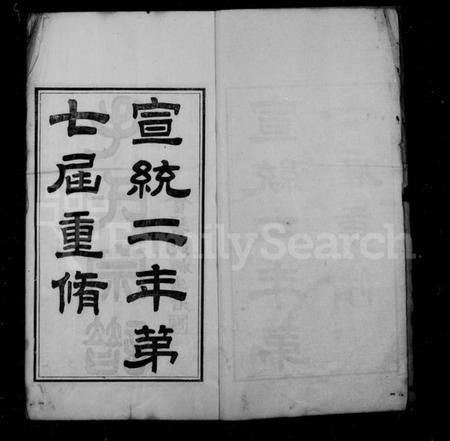 宣統二年第
七屆重脩
FamilySearch